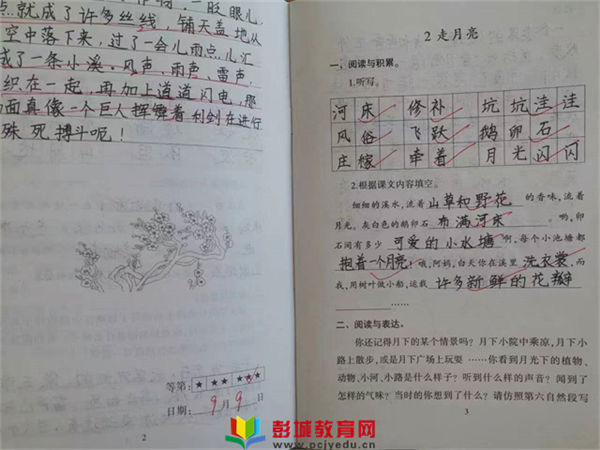 作物，一眨眼儿
点就成了许多丝线，铺天盖地从
空中落下来，过了一会儿雨点儿汇
成了一条小溪。风声、雨声、雷声，
织在一起，再加上道道闪电，那
面真像一个巨人挥舞着利剑在进行
殊死搏斗呢！
等第：★★★★★
日期：9月9日
2
2 走月亮
一、阅读与积累。
1.听写。
河床 修补 坑坑洼洼
风俗 飞跃 鹅卵石
庄稼 牵着 月光闪闪
2.根据课文内容填空。
细细的溪水，流着山草和野花的香味，流着
月光。灰白色的鹅卵石布满河床。哟，卵
石间有多少可爱的小水塘啊，每个小池塘都
抱着一个月亮！哦，阿妈，白天你在溪里洗衣裳，而
我，用树叶做小船，运载许多新鲜的花瓣
……
二、阅读与表达。
你还记得月下的某个情景吗？月下小院中乘凉，月下小
路上散步，或是月下广场上玩耍……你看到月光下的植物、
动物、小河、小路是什么样子？听到什么样的声音？闻到了
怎样的气味？当时的你想到了什么？请仿照第六自然段写
3
彭城教育网
www.pcjyedu.cn